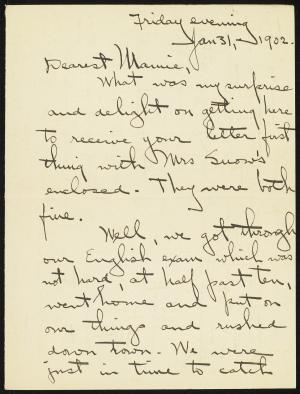 Friday evening
Jan 31, 1902.
Dearest Mamie,
What was my surprise
and delight on getting here
to receive your letter first
thing with Mrs Snow's
enclosed. They were both
fine.
Well, we got through
our English exam which was
not hard, at half past ten,
went home and put on
our things and rushed
down town. We were
just in time to catch